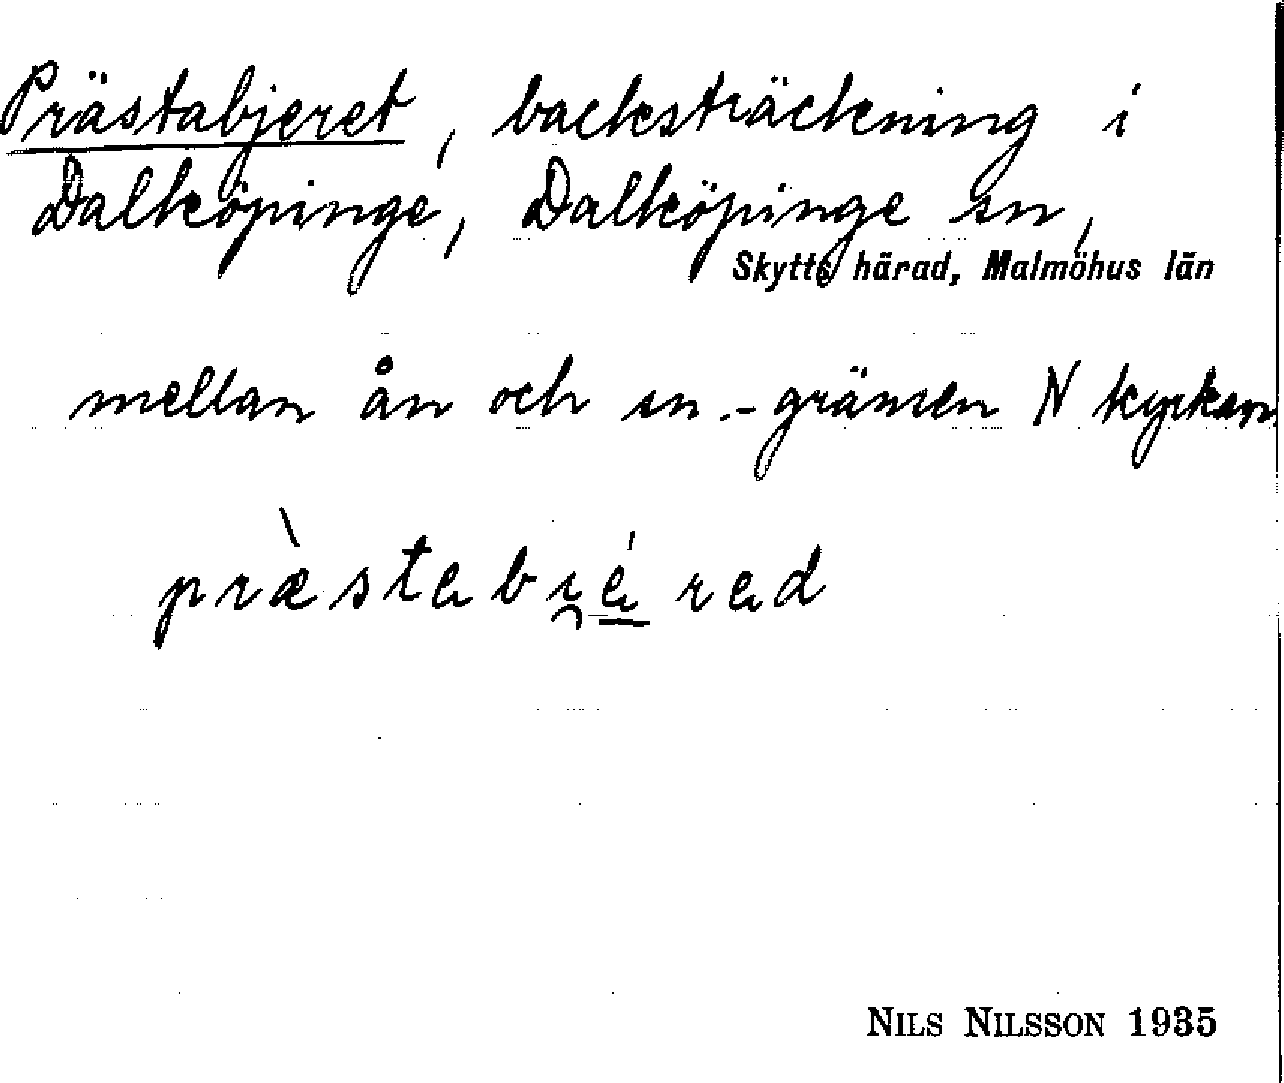 Prästabjeret, backsträckning i
Dalköpinge, Dalköpinge sn,
Skytts härad, Malmöhus län
mellan ån och sn.-gränsen N kyrkan
NILS NILSSON 1935